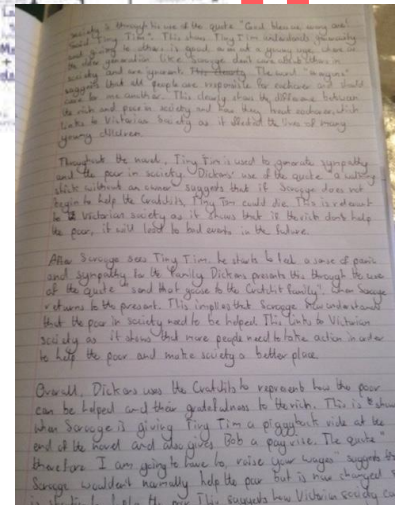 society is through his use of the quote "God bless us every one!
said Tiny Tim". This shows Tiny Tim understands generosity
and giving to others is good even at a young age, where as
the older generation like Scrooge don't care about others in
society and are ignorant. The word "everyone"
suggests that all people are responsible for eachover and should
care for one another. This clearly shows the difference between
the rich and poor in society and how they treat eachover, which
links to Victorian Society as it affected the lives of many
young children.
Throughout the novel, Tiny Tim is used to generate sympathy
and the poor in society. Dickens' use of the quote "a walking
stick without an owner" suggests that if Scrooge does not
begin to help the Cratchits, Tiny Tim could die. This is relevant
to Victorian society as it shows that if the rich dont help
the poor, it will lead to bad events in the future.
After Scrooge sees Tiny Tim, he starts to feel a sense of panic
and sympathy for the family. Dickens presents this through the use
of the quote "send that goose to the Cratchit family", when Scrooge
returns to the present. This implies that Scrooge now understands
that the poor in society need to be helped. This links to Victorian
society as it shows that more people need to take action in order
to help the poor and make society a better place.
Overall, Dickens uses the Cratchits to represent how the poor
can be helped and their gratefulness to the rich. This is shown
when Scrooge is giving Tiny Tim a piggyback ride at the
end of the novel and also gives Bob a pay rise. The quote "
therefore I am going to have to, raise your wages" suggests that
Scrooge wouldn't normally help the poor but is now changed
help the poor. This suggests how Victorian society